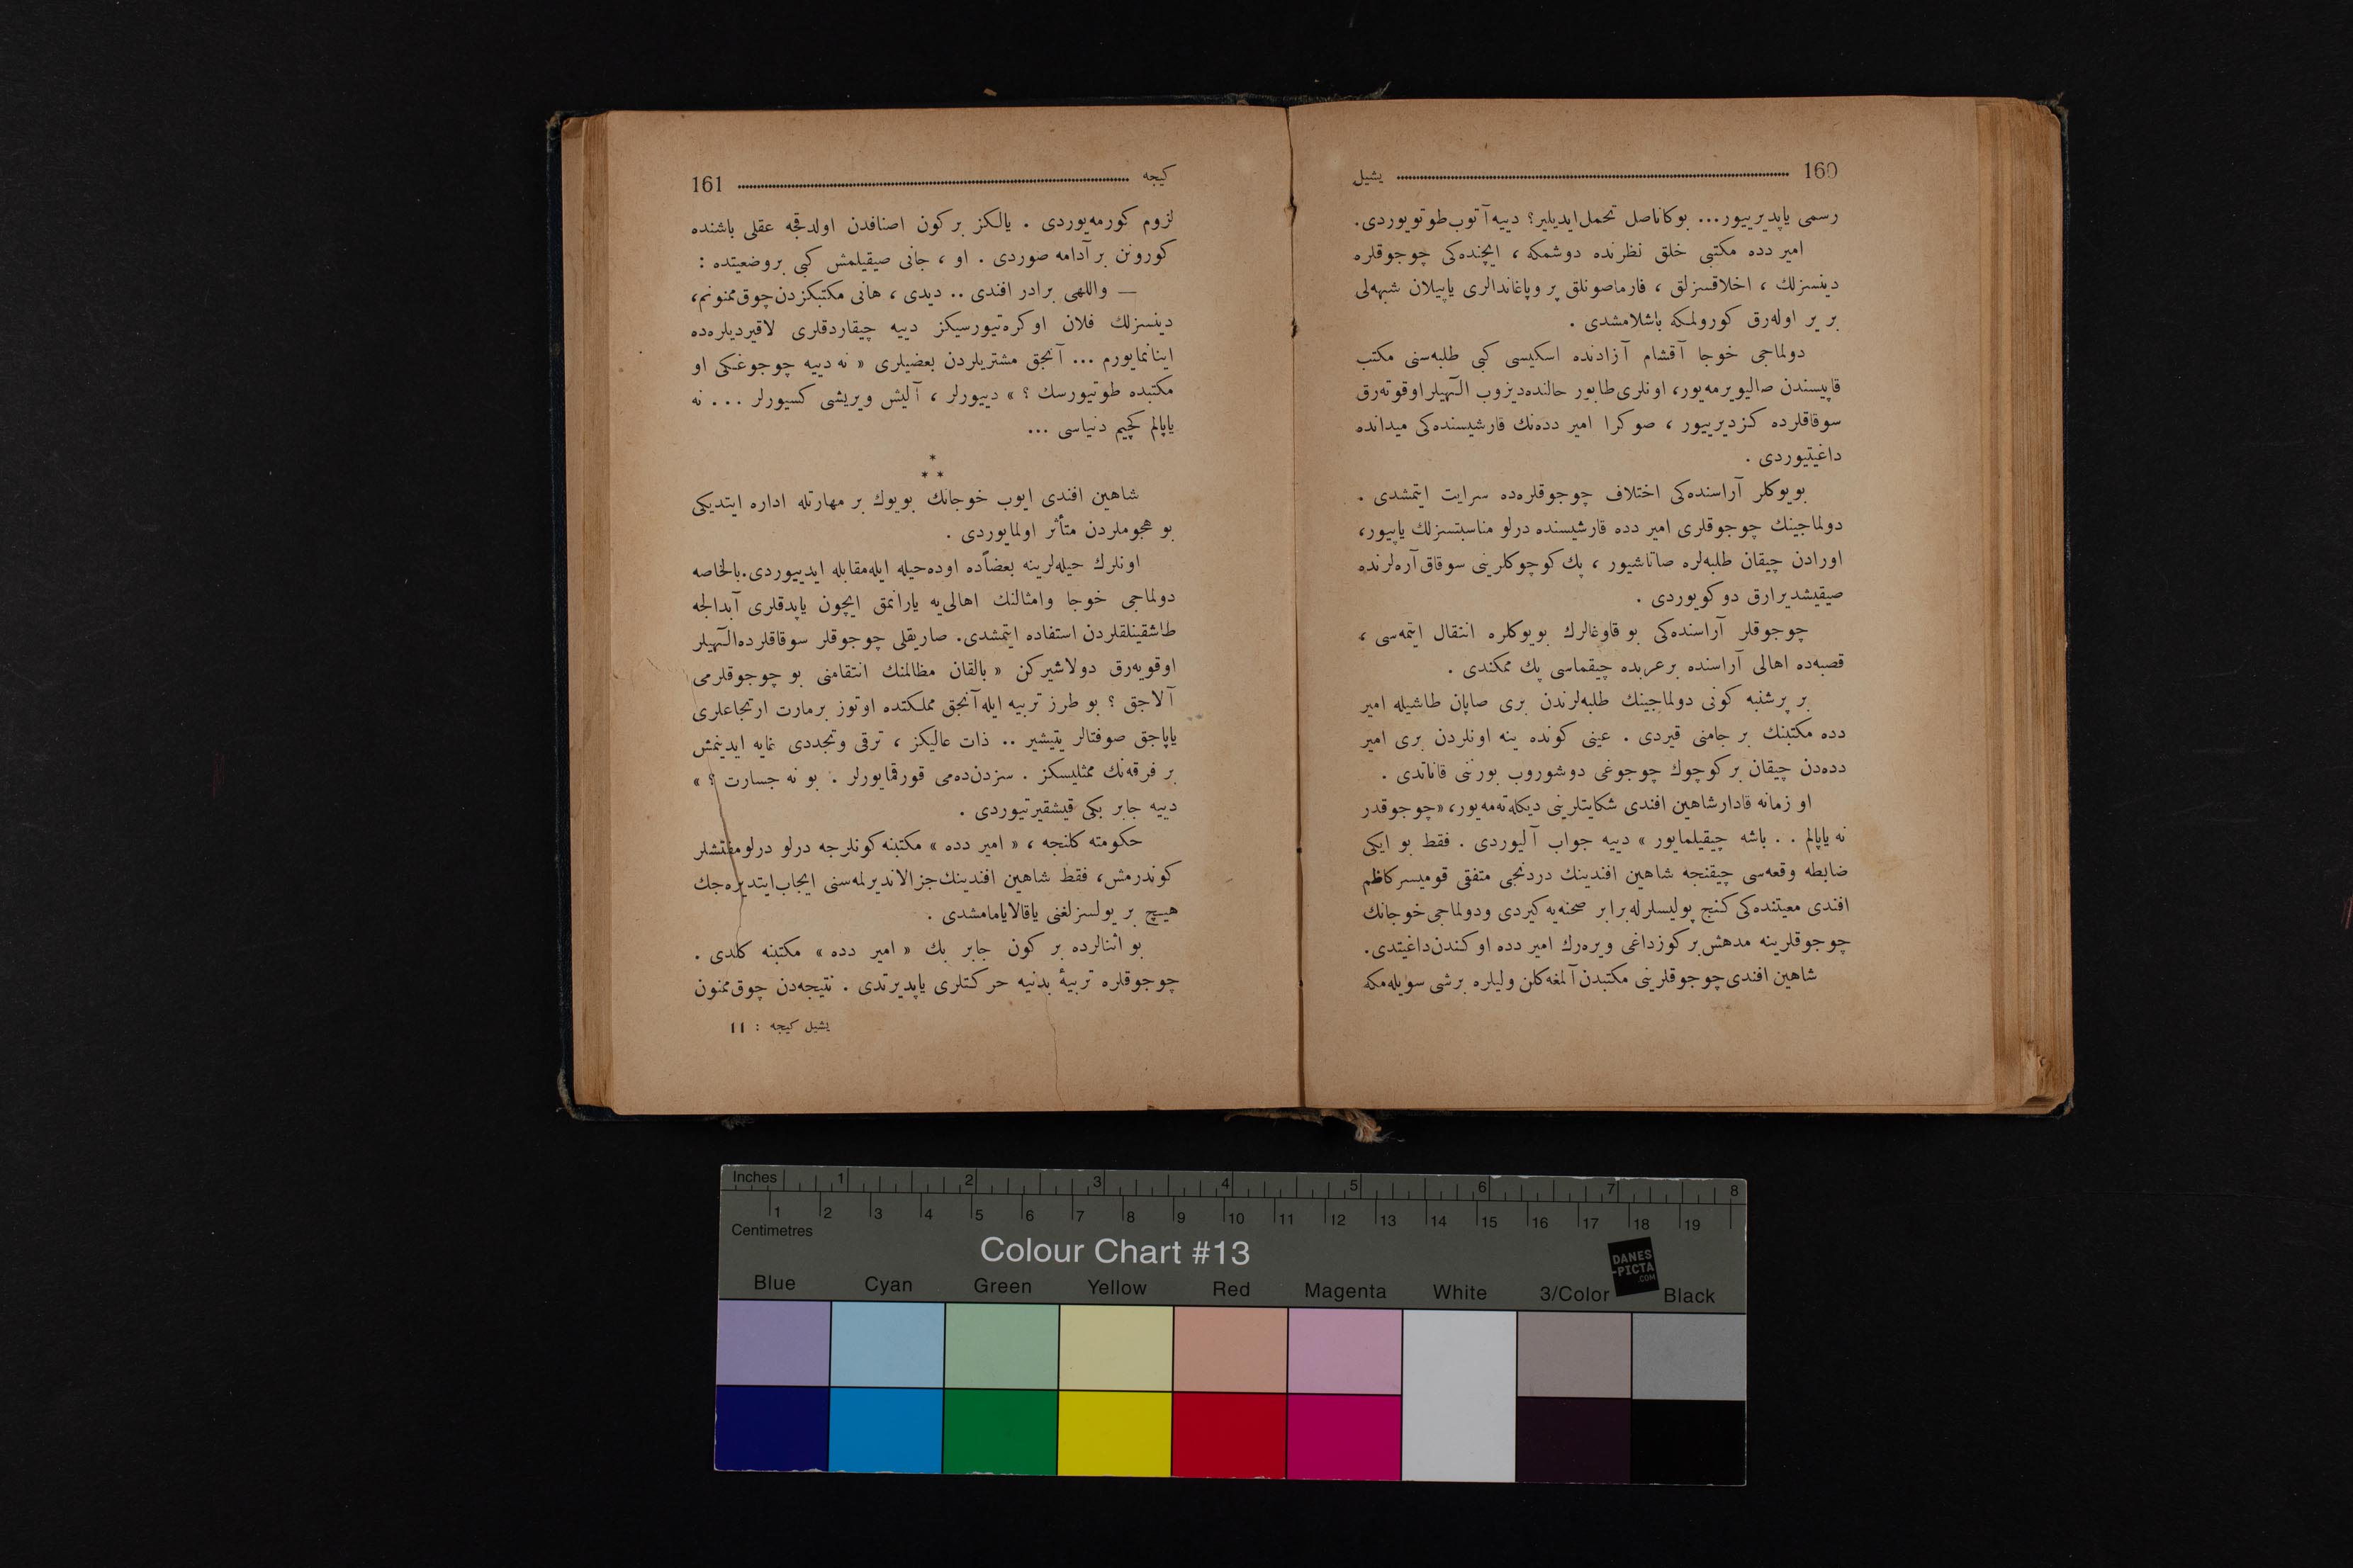 160 یشیل
رسمی یاپدیرییور... بوكا ناصل تحمل ایدیلیر؟ دییه آتوب طوتویوردی.
امیر دده مكتبی خلق نظرنده دوشمكه ، ایچنده‌كی چوجوقلره
دینسزلك ، اخلاقسزلق ، فارماصونلق پروپاغاندالری یاپیلان شبهه‌لی
بر یر اوله‌رق كورولمكه باشلامشدی .
دولماجی خوجا آقشام آزادنده اسكیسی كبی طلبه‌سنی مكتب
قاپیسندن صالیویرمه‌یور، اونلری طابور حالنده دیزوب الٓهیلر اوقوته‌رق
سوقاقلرده كزدیرییور ، صوكرا امیر دده‌نك قارشیسنده‌كی میدانده
داغیتیوردی .
بویوكلر آراسنده‌كی اختلاف چوجوقلره‌ده سرایت ایتمشدی .
دولماجینك چوجوقلری امیر دده قارشیسنده درلو مناسبتسزلك یاپیور،
اورادن چیقان طلبه‌لره صاتاشیور ، پك كوچوكلرینی سوقاق آره‌لرنده
صیقیشدیرارق دوكویوردی .
چوجوقلر آراسنده‌كی بو قاوغالرك بویوكلره انتقال ایتمه‌سی ،
قصبه‌ده اهالی آراسنده بر عربده چیقماسی پك ممكندی .
بر پرشنبه كونی دولماجینك طلبه‌لرندن بری صاپان طاشیله امیر
دده مكتبنك بر جامنی قیردی . عینی كونده ینه اونلردن بری امیر
دده‌دن چیقان بر كوچوك چوجوغی دوشوروب بورننی قاناتدی .
او زمانه قادار شاهین افندی شكایتلرینی دیكله‌ته‌مه‌یور، «چوجوقدر
نه یاپالم . . باشه چیقیلمایور » دییه جواب آلیوردی . فقط بو ایكی
ضابطه وقعه‌سی چیقنجه شاهین افندینك دردنجی متفقی قومیسر كاظم
افندی معیتنده‌كی كنج پولیسلرله برابر صحنه‌یه كیردی و دولماجی خوجانك
چوجوقلرینه مدهش بر كوزداغی ویره‌رك امیر دده اوكندن داغیتدی.
شاهین افندی چوجوقلرینی مكتبدن آلمغه كلن ولیلره بر شی سویله‌مكه
كیجه 161
لزوم كورمه‌یوردی . یالكز بر كون اصنافدن اولدقجه عقلی باشنده
كورونن بر آدامه صوردی . او ، جانی صیقیلمش كبی بر وضعیتده :
— واللهی برادر افندی .. دیدی ، هانی مكتبكزدن چوق ممنونم،
دینسزلك فلان اوكره‌تیورسیكز دییه چیقاردقلری لاقیردیلره‌ده
اینانمایورم ... آنجق مشتریلردن بعضیلری « نه دییه چوجوغكی او
مكتبده طوتیورسك ؟ » دییورلر ، آلیش ویریشی كسیورلر ... نه
یاپالم كچیم دنیاسی ...
* * *
شاهین افندی ایوب خوجانك بویوك بر مهارتله اداره ایتدیكی
بو هجوملردن متأثر اولمایوردی .
اونلرك حیله‌لرینه بعضاً ده اوده حیله ایله مقابله ایدییوردی. بالخاصه
دولماجی خوجا وامثالنك اهالی‌یه یارانمق ایچون یاپدقلری آبدالجه
طاشقینلقلردن استفاده ایتمشدی. صاریقلی چوجوقلر سوقاقلرده الٓهیلر
اوقویه‌رق دولاشیركن « بالقان مظالمنك انتقامنی بو چوجوقلرمی
آلاجق ؟ بو طرز تربیه ایله آنجق مملكتده اوتوز بر مارت ارتجاعلری
یاپاجق صوفتالر یتیشیر .. ذات عالیكز ، ترقی وتجددی غایه ایدینمش
بر فرقه‌نك ممثلیسكز . سزدن ده‌می قورقمایورلر . بو نه جسارت ؟ »
دییه جابر بكی قیشقیرتیوردی .
حكومته كلنجه ، « امیر دده » مكتبنه كونلرجه درلو درلو مفتشلر
كوندرمش، فقط شاهین افندینك جزالاندیرلمه‌سنی ایجاب ایتدیره‌جك
هیچ بر یولسزلغنی یاقالایامامشدی .
بو اثنالرده بر كون جابر بك « امیر دده » مكتبنه كلدی .
چوجوقلره تربیهٔ بدنیه حركتلری یاپدیرتدی . نتیجه‌دن چوق ممنون
یشیل كیجه : 11
Inches 1 2 3 4 5 6 7 8
1 2 3 4 5 6 7 8 9 10 11 12 13 14 15 16 17 18 19
Centimetres
Colour Chart #13
DANES
-PICTA
.COM
Blue Cyan Green Yellow Red Magenta White 3/Color Black